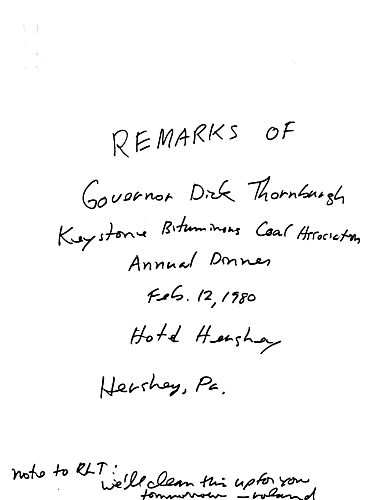 REMARKS OF
Governor Dick Thornburgh
Keystone Bituminous Coal Association
Annual Dinner
Feb. 12, 1980
Hotel Hershey
Hershey, Pa.
note to RLT:
we'll clean this up for you
tommorrow - roland